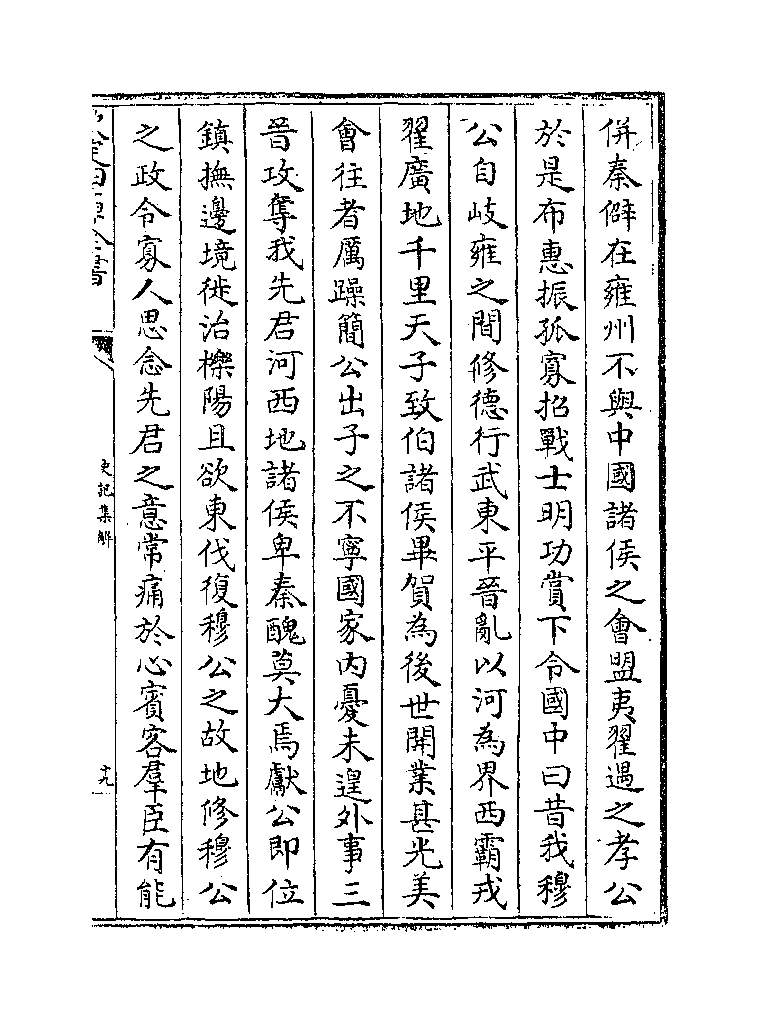 併秦僻在雍州不與中國諸侯之會盟夷翟遇之孝公
於是布惠振孤寡招戰士明功賞下令國中曰昔我穆
公自岐雍之間修德行武東平晉亂以河為界西霸戎
翟廣地千里天子致伯諸侯畢賀為後世開業甚光美
會往者厲躁簡公出子之不寧國家內憂未遑外事三
晉攻奪我先君河西地諸侯卑秦醜莫大焉獻公即位
鎮撫邊境徙治櫟陽且欲東伐復穆公之故地修穆公
之政令寡人思念先君之意常痛於心賓客羣臣有能
史記集解
十九